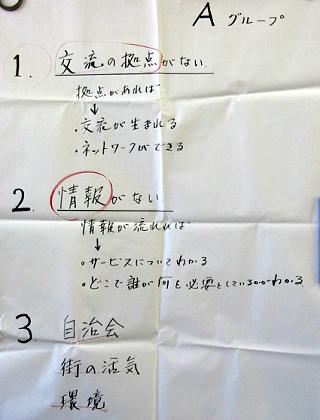 A グループ
1. 交流の拠点がない
拠点があれば
↓
・交流が生まれる
・ネットワークができる
2. 情報がない
情報が流れれば
↓
・サービスについてわかる
・どこで誰が何を必要としているのかわかる
3 自治会
街の活気
環境